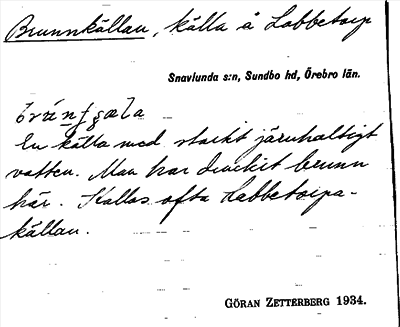 Brunnkällan, källa å Labbetorp
Snavlunda s:n, Sundbo hd, Örebro län.
En källa med starkt järnhaltigt
vatten. Man har druckit brunn
här. Kallas ofta Labbetorpa-
källan.
GÖRAN ZETTERBERG 1934.